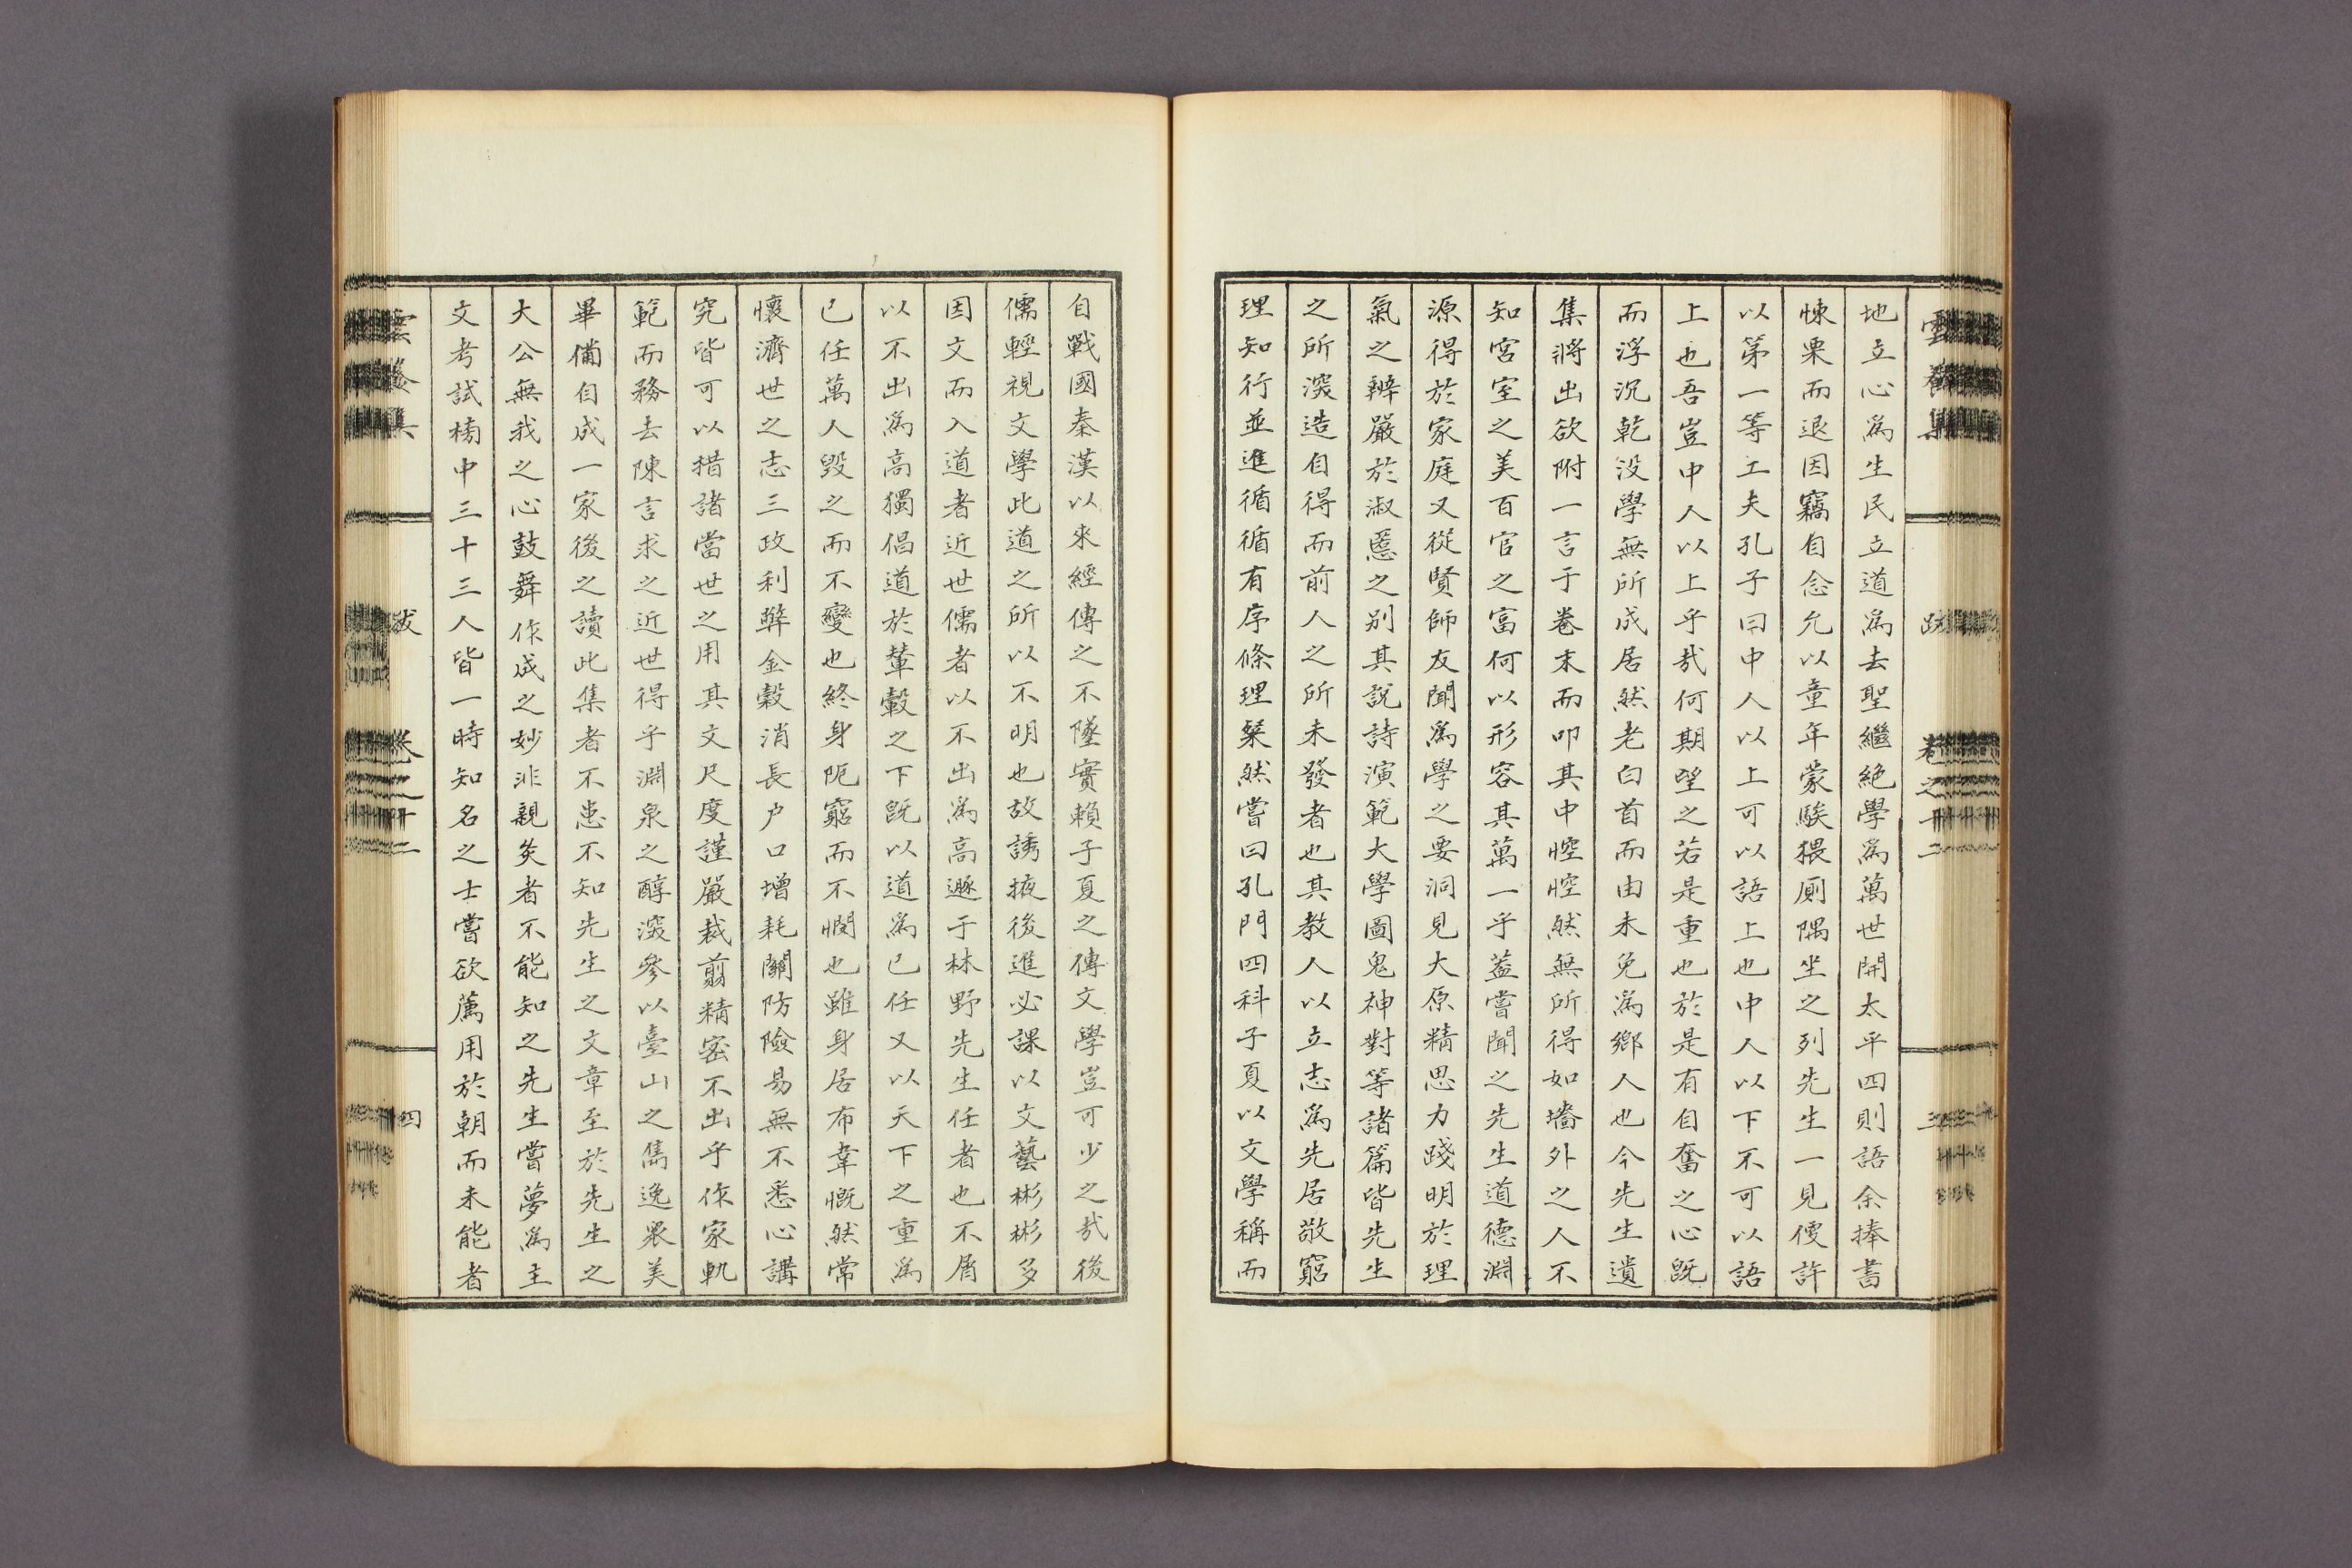 地立心爲生民立道爲去聖繼絶學爲萬世開太平四則語余捧書
悚栗而退因竊自念允以童年蒙騃猥厠隅坐之列先生一見便許
以第一等工夫孔子曰中人以上可以語上也中人以下不可以語
上也吾豈中人以上乎哉何期望之若是重也於是有自奮之心旣
而浮沉乾没學無所成居然老白首而由未免爲鄉人也今先生遺
集將出欲附一言于卷末而叩其中悾悾然無所得如墻外之人不
知宮室之美百官之富何以形容其萬一乎蓋嘗聞之先生道德淵
源得於家庭又從賢師友聞爲學之要洞見大原精思力踐明於理
氣之辨嚴於淑慝之别其說詩演範大學圖鬼神對等諸篇皆先生
之所深造自得而前人之所未發者也其教人以立志爲先居敬窮
理知行並進循循有序條理粲然嘗曰孔門四科子夏以文學稱而
自戰國秦漢以來經傳之不墜實賴子夏之傳文學豈可少之哉後
儒輕視文學此道之所以不明也故誘掖後進必課以文藝彬彬多
因文而入道者近世儒者以不出爲高遯于林野先生任者也不屑
以不出爲高獨倡道於輦轂之下旣以道爲己任又以天下之重爲
己任萬人毁之而不變也終身阨窮而不憫也雖身居布韋慨然常
懷濟世之志三政利弊金穀消長户口增耗關防險易無不悉心講
究皆可以措諸當世之用其文尺度謹嚴裁翦精密不出乎作家軌
範而務去陳言求之近世得乎淵泉之醇深參以臺山之雋逸衆美
畢備自成一家後之讀此集者不患不知先生之文章至於先生之
大公無我之心鼓舞作成之妙非親炙者不能知之先生嘗夢爲主
文考試榜中三十三人皆一時知名之士嘗欲薦用於朝而未能者
跋
卷之十二
四